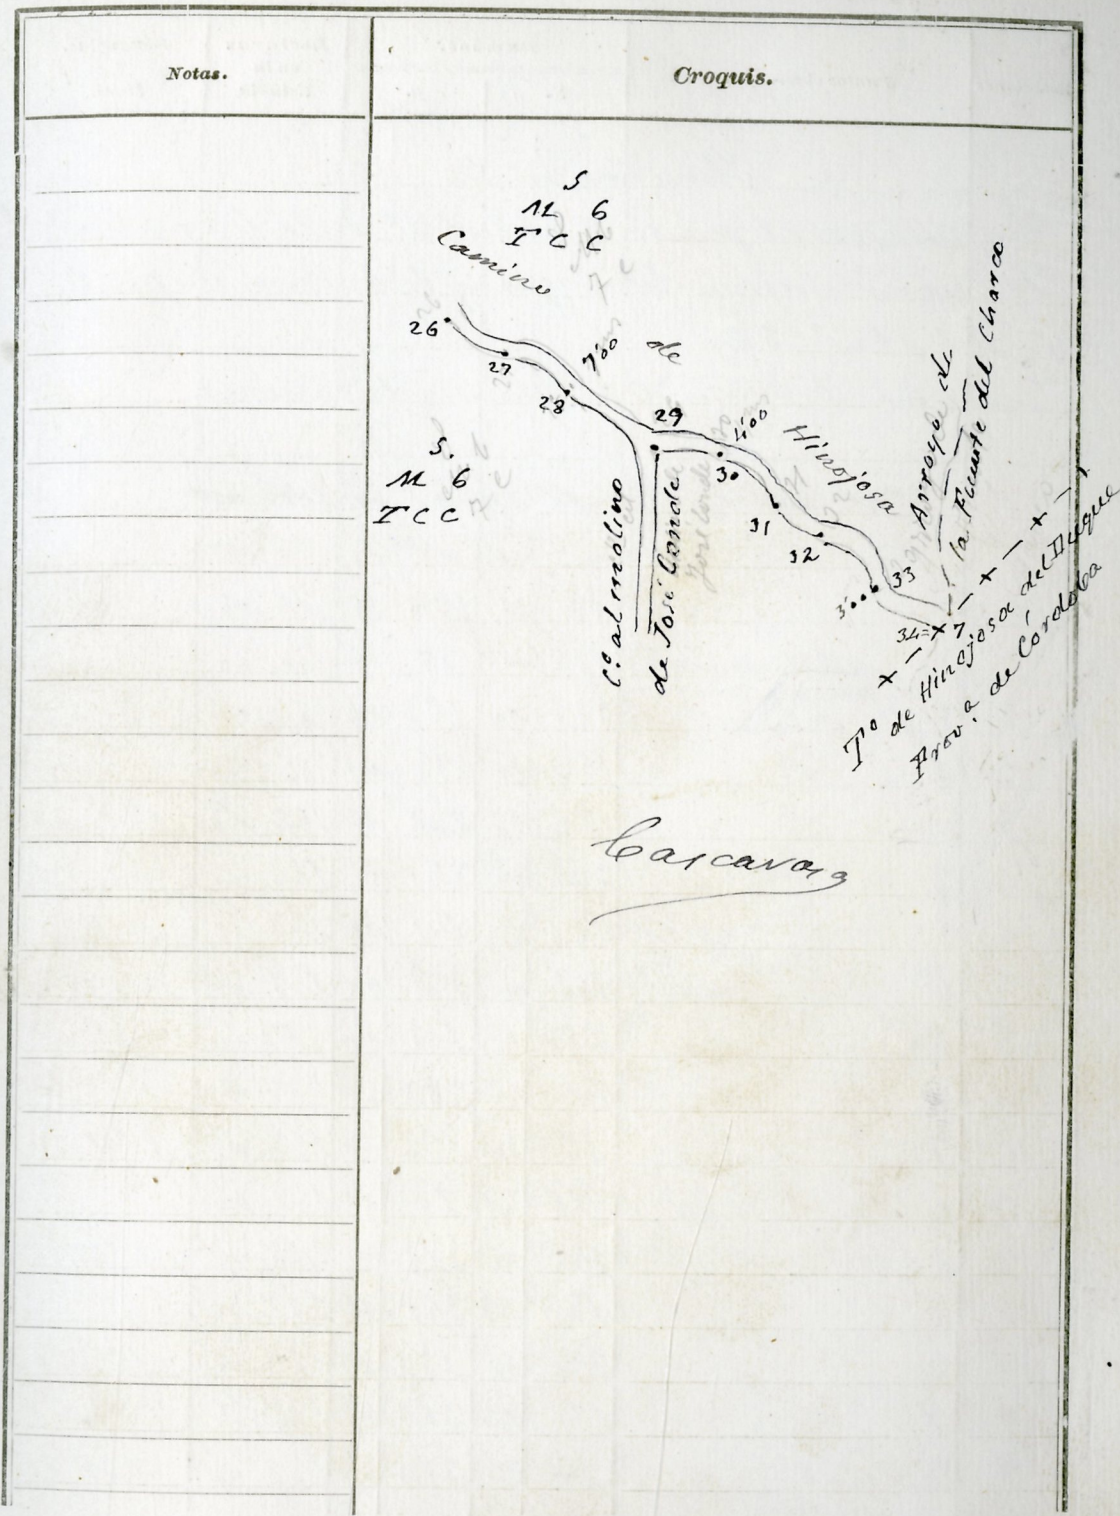 Notas.
Croquis.
S
M 6
T C C
Camino
de
Hinojosa
26
27
28
7'00
29
4'00
30
31
32
33
3'00
34=x7
S.
M 6
T C C
C.º al molino
de José Conde
Arroyo de
la Fuente del Charco
Tº de Hinojosa del Duque
Prov.ª de Córdoba